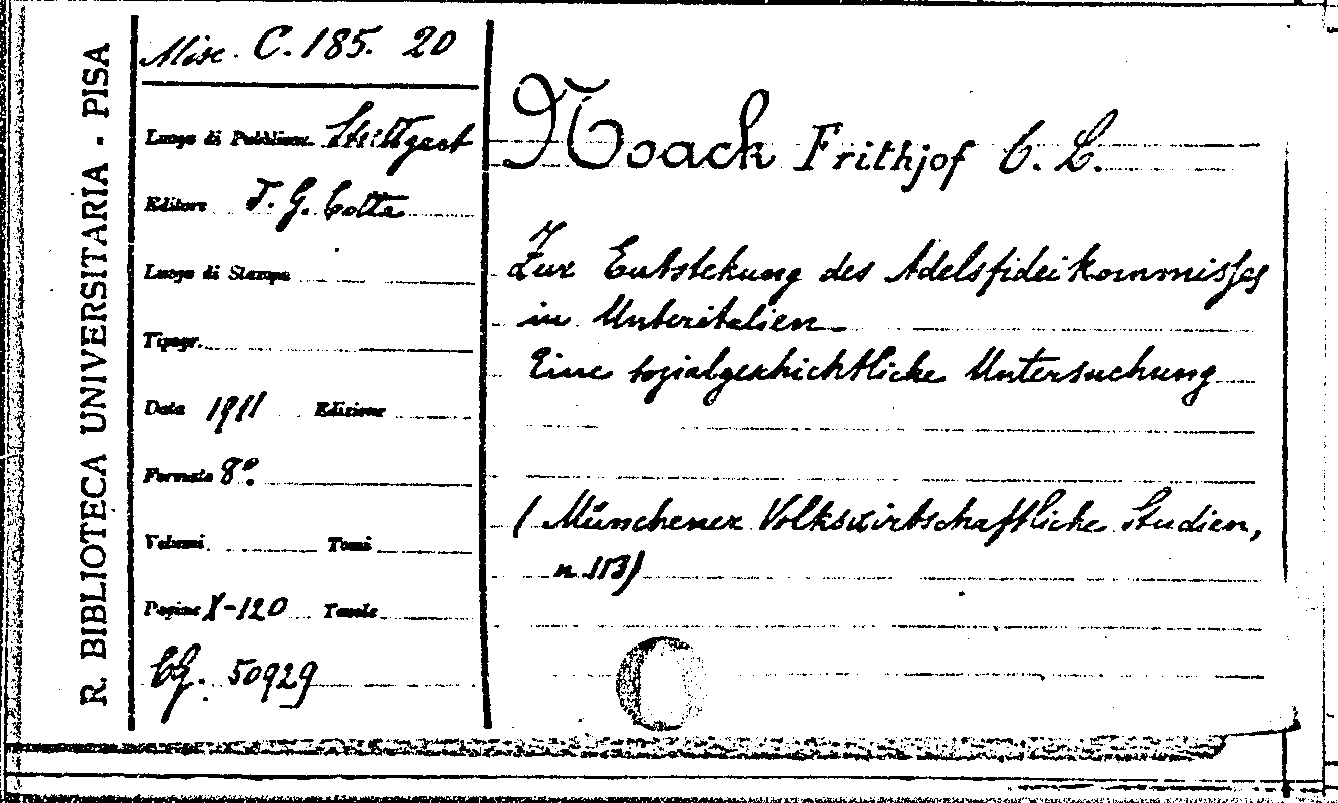 R. BIBLIOTECA UNIVERSITARIA - PISA
Misc. C. 185. 20
Luogo di Pubblicaz. Stuttgart
Editore J. G. Cotta
Luogo di Stampa
Tipogr.
Data 1911 Edizione
Formato 8º.
Volumi Tomi
Pagine X-120 Tavole
CG. 50929
Noack Frithjof C. L.
Zur Entstehung des Adelsfideikommisses
in Unteritalien
Eine sozialgeschichtliche Untersuchung
(Münchener Volkswirtschaftliche Studien,
n. 113)